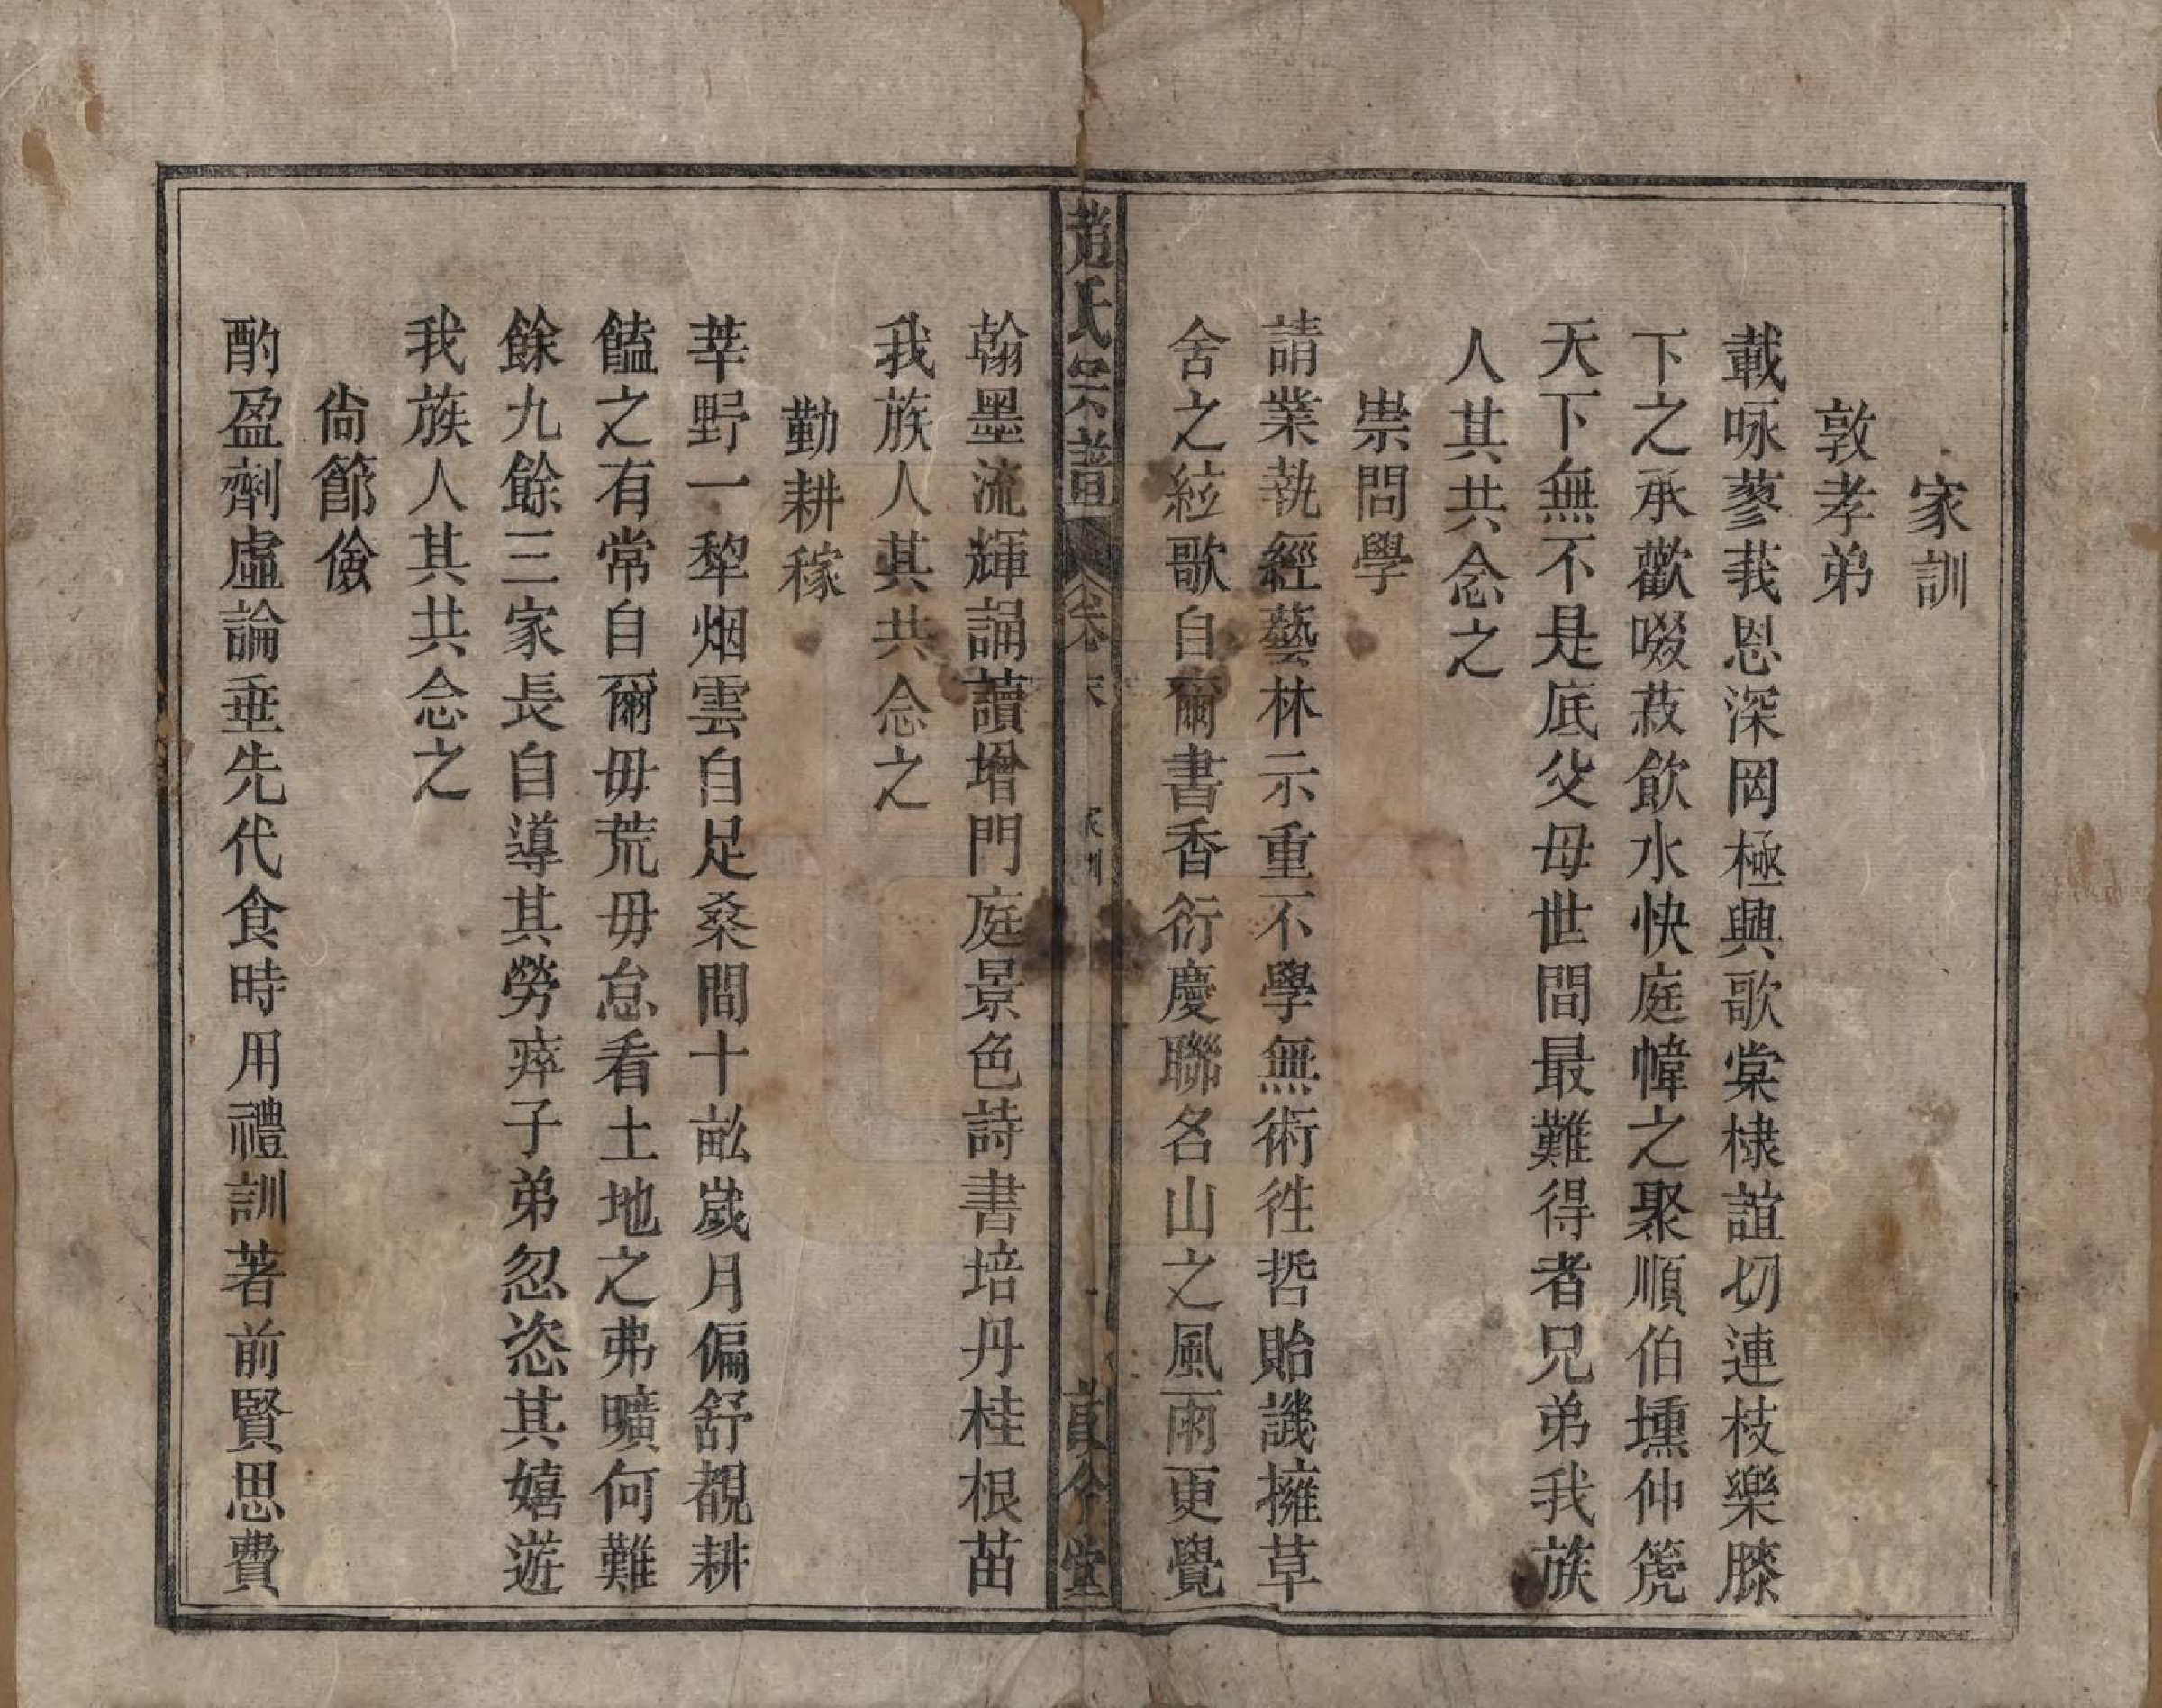 家訓
敦孝弟
載咏蓼莪恩深罔極興歌棠棣誼切連枝樂膝
下之承歡啜菽飲水快庭幃之聚順伯壎仲箎
天下無不是底父母世間最難得者兄弟我族
人其共念之
崇問學
請業執經藝林示重不學無術徃哲貽譏擁草
舍之絃歌自爾書香衍慶聯名山之風雨更覺
趙氏宗譜
卷末
家訓
堂
翰墨流輝誦讀增門庭景色詩書培丹桂根苗
我族人其共念之
勤耕稼
莘野一犂烟雲自足桑間十畝歲月偏舒覩耕
饁之有常自爾毋荒毋怠看土地之弗曠何難
餘九餘三家長自導其勞瘁子弟忽恣其嬉遊
我族人其共念之
尙節儉
酌盈劑虛論垂先代食時用禮訓著前賢思費